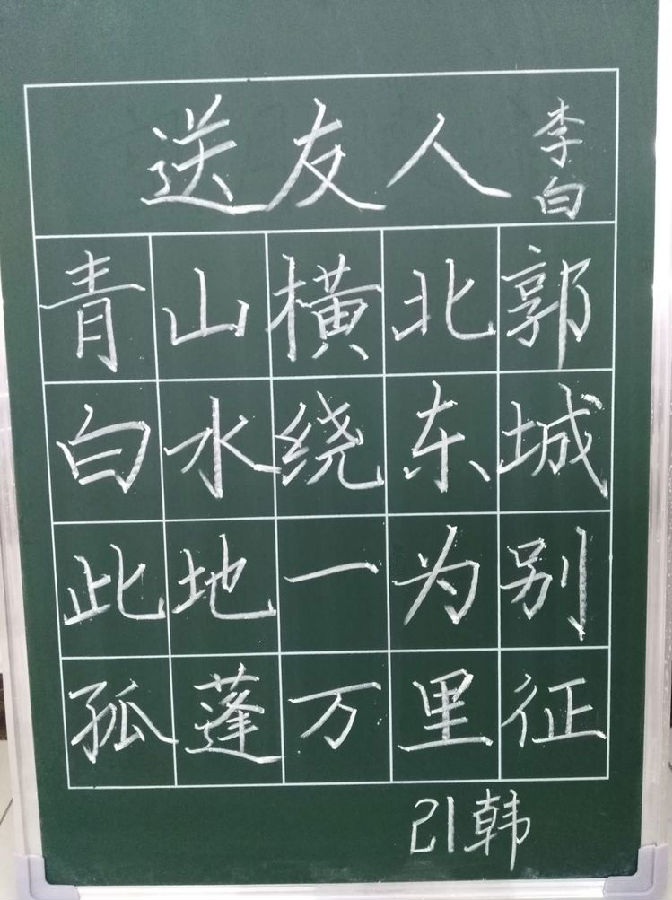 送友人 李白
青山横北郭
白水绕东城
此地一为别
孤蓬万里征
21韩